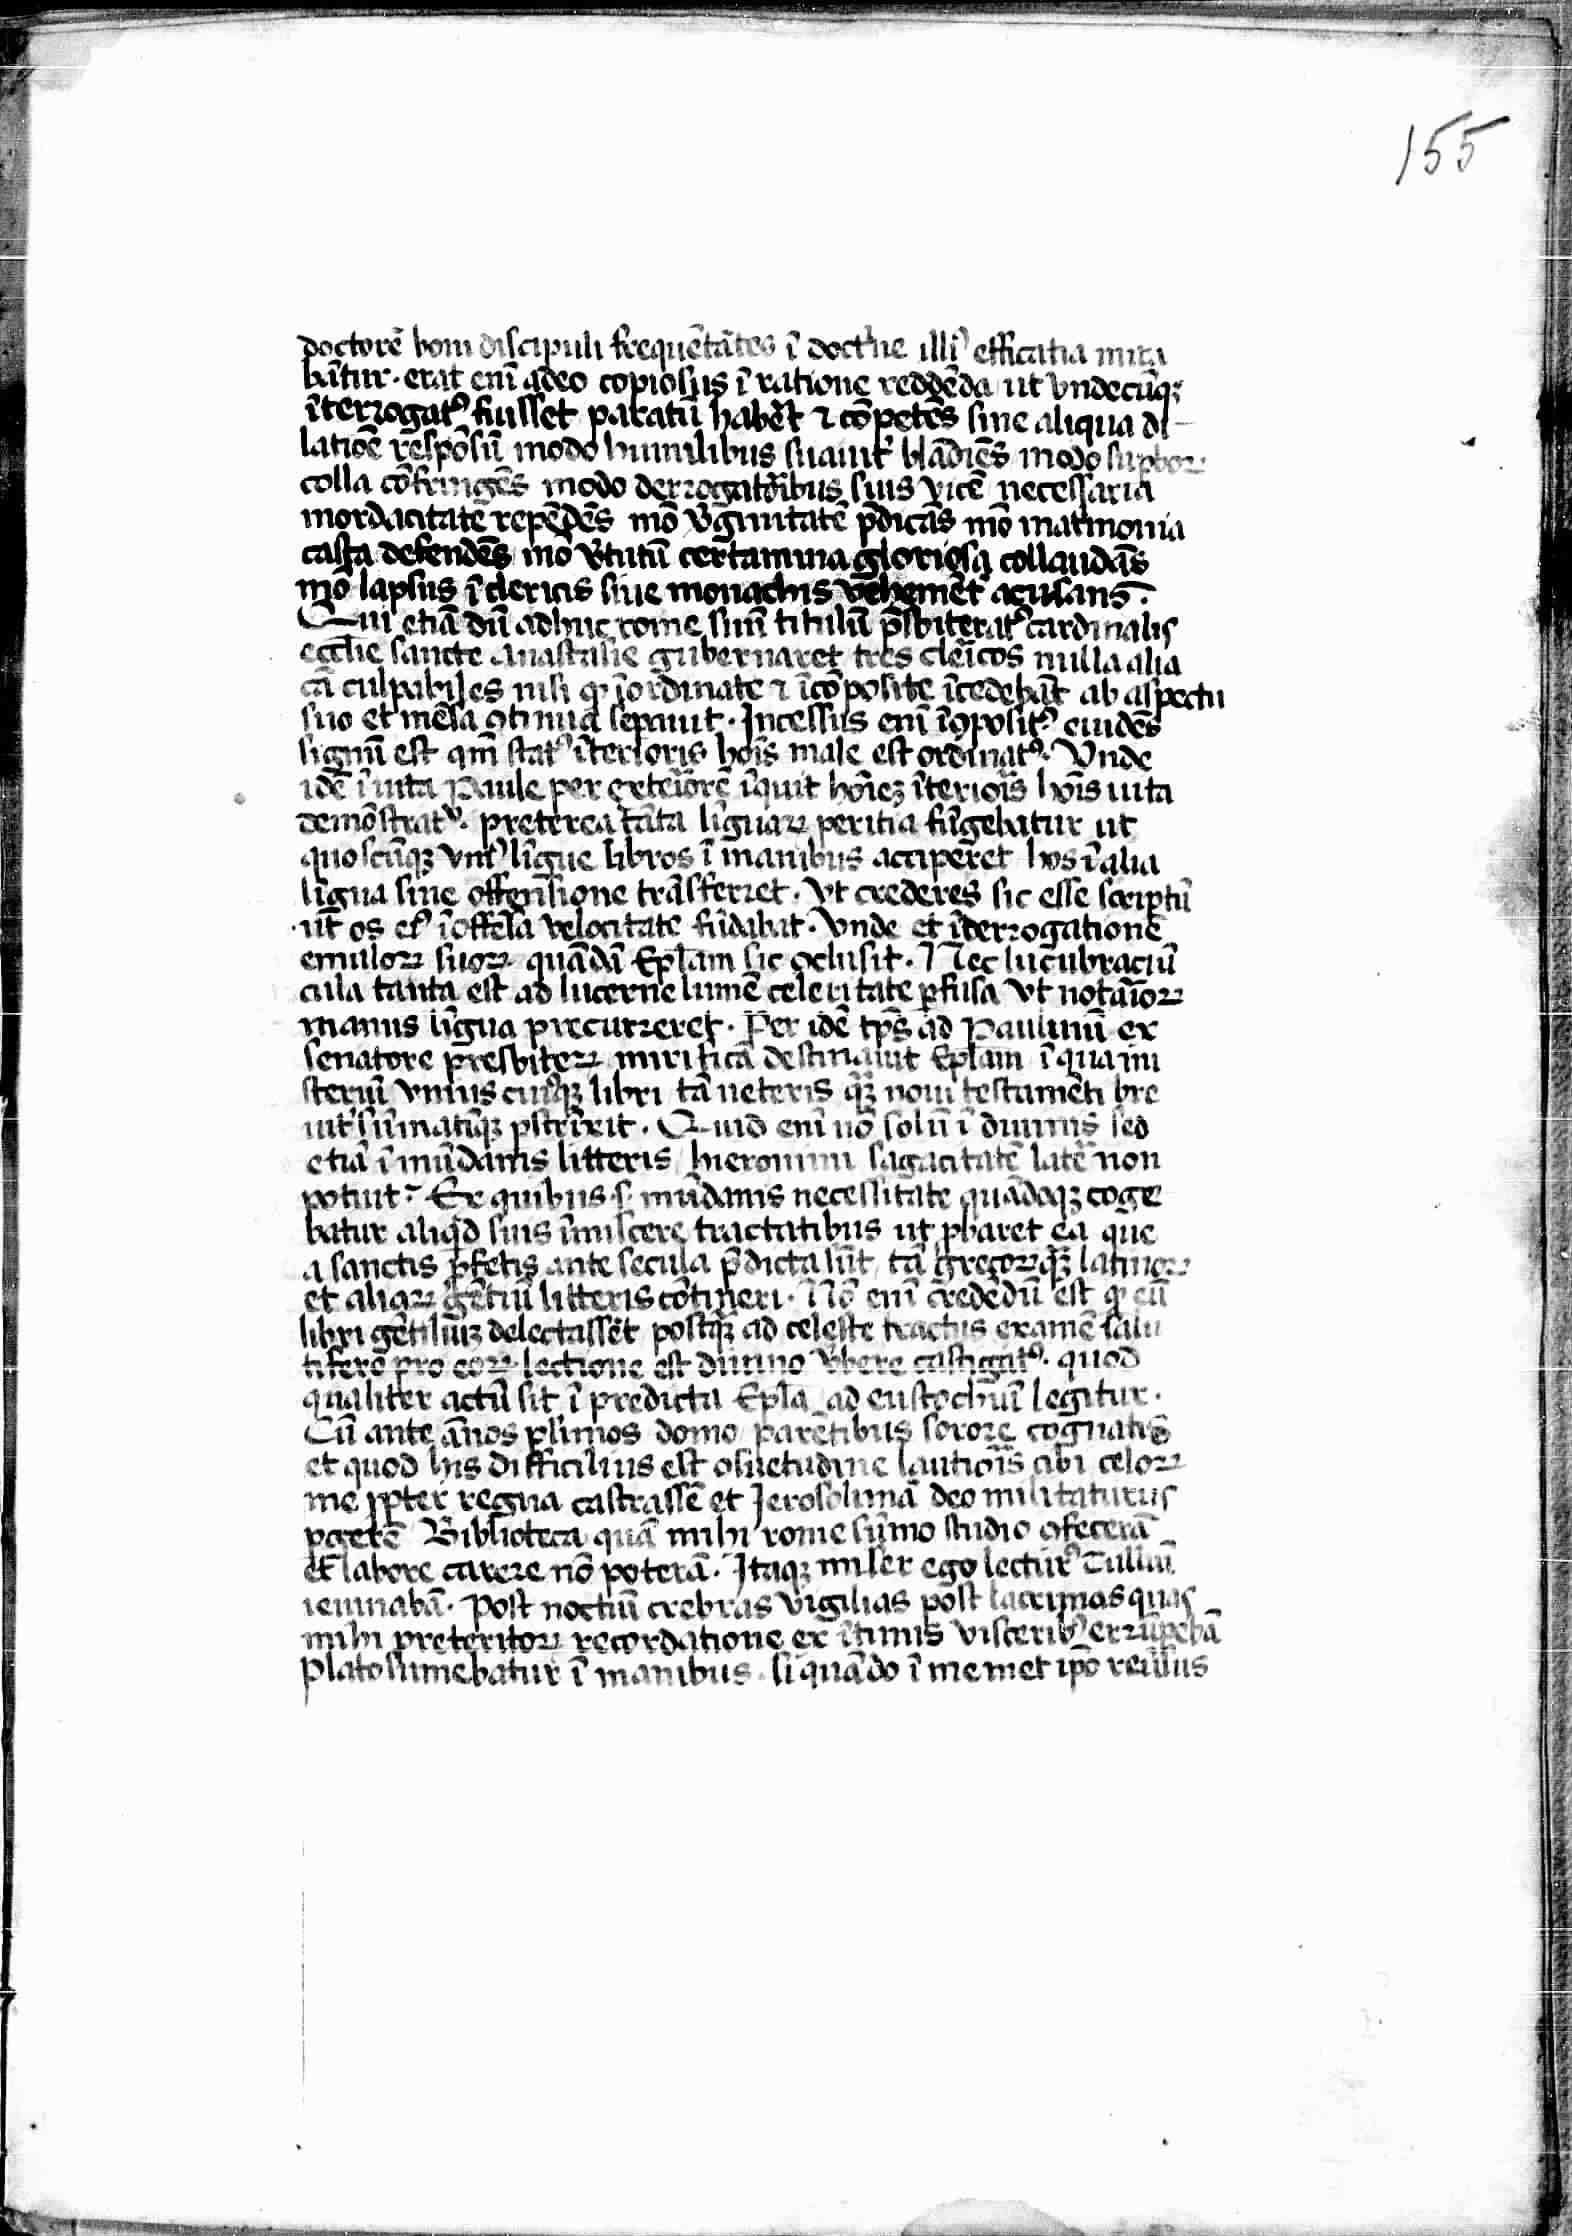 155
doctorē boni discipuli frequētātes ī doctͥne illiꝰ efficatia mira
bātur. erat enī adeo copiosus ī ratione reddēda ut vndecūqꝫ
īterrogatꝰ fuisset paratū habēt ⁊ cōpetēs sine aliqua di-
latiōe respōsū modo humilibus suauit᷑ blādiēs modo supboꝝ
colla cōfringēs modo derrogatoribus suis vicē necessaria
mordacitate repēdēs mō v᷑ginitatē p̄dicās mō matͥmonia
casta defendēs mō v᷑tutū certamina gloriosa collaudās
mō lapsus ī clericis siue monachis vehemēt᷑ acusans.
Qui etiā dū adhuc rome suū titulū p̄sbiteratꝰ cardinalis
ecclīe sancte Anastasie gubernaret tres clericos nulla alia
cā culpabiles nisi qꝫ īordinate ⁊ īcōposite īcedebāt ab aspectu
suo et mēsa ꝯtinua sepauit. Incessus enī īꝯpositꝰ euidēs
signū est qm̄ statꝰ īterioris hoīs male est ordinatꝰ. Vnde
idē ī uita Paule per exteriorē īquit hoīeꝫ īterioris hoīs uita
demōstrat᷑. preterea tāta līguaꝝ peritia fūgebatur ut
quoscūqꝫ vniꝰ līgue libros ī manibus acciperet hos ī alia
līgua sine offensione trāsferret. Vt crederes sic esse scriptū
ut os eiꝰ īoffēsa velocitate fūdabat. Vnde et īterrogatione
emuloꝝ suoꝝ quādā Ep̄lam sic ꝯclusit. Nec lucubraciū
cula tanta est ad lucerne lumē celeritate ꝑfusa Vt notarioꝝ
manus līgua precurreret. Per idē tp̄s ad Paulinū ex
senatore presbiteꝝ mirificā destinauit Ep̄lam ī qua mi
steriū vnius cuiusqꝫ libri tā ueteris qꝫ noui testamēti bre
uit᷑ sūmatīqꝫ ꝑstrīxit. Quid enī nō solū ī diuinis sed
etiā ī mūdanis litteris hieronimi sagacitatē latēr non
potuit? Ex quibus .s. mūdanis necessitate quadaqꝫ coge
batur aliqͥd suis īmiscere tractatibus ut ꝓbaret ea que
a sanctis ꝓfetis ante secula p̄dicta sūt tā grecoꝝ qꝫ latinoꝝ
et aliaꝝ gētiū litteris cōtineri. Nō enī credēdū est qꝫ eū
libri gētiliūꝫ delectassēt postqꝫ ad celeste tractus examē salu
tiferē pro eoꝝ lectione est diuino v᷑bere castigatꝰ. quod
qualiter actū sit ī predicta Ep̄la ad eustochiuī legitur.
Cū ante ānos plͥimos domo parētibus sorore cognatis
et quod his difficilius est ꝯsuetudine lautioris cibi celoꝝ
me ꝓpter regna castrassē et Jerosolimā deo militaturus
pgerē Biblioteca quā mihi rome sūmo studio ꝯfecerā
et labore carere nō poterā. Itaqꝫ miser ego lecturꝰ Tulliū
ieiunabā. Post noctiū crebras vigilias post lacrimas quas
mihi preteritoꝝ recordatione ex ītimis visceribꝰ errūpebā
Plato sumebatur ī manibus. si quādo ī memet ip̄o reuersus